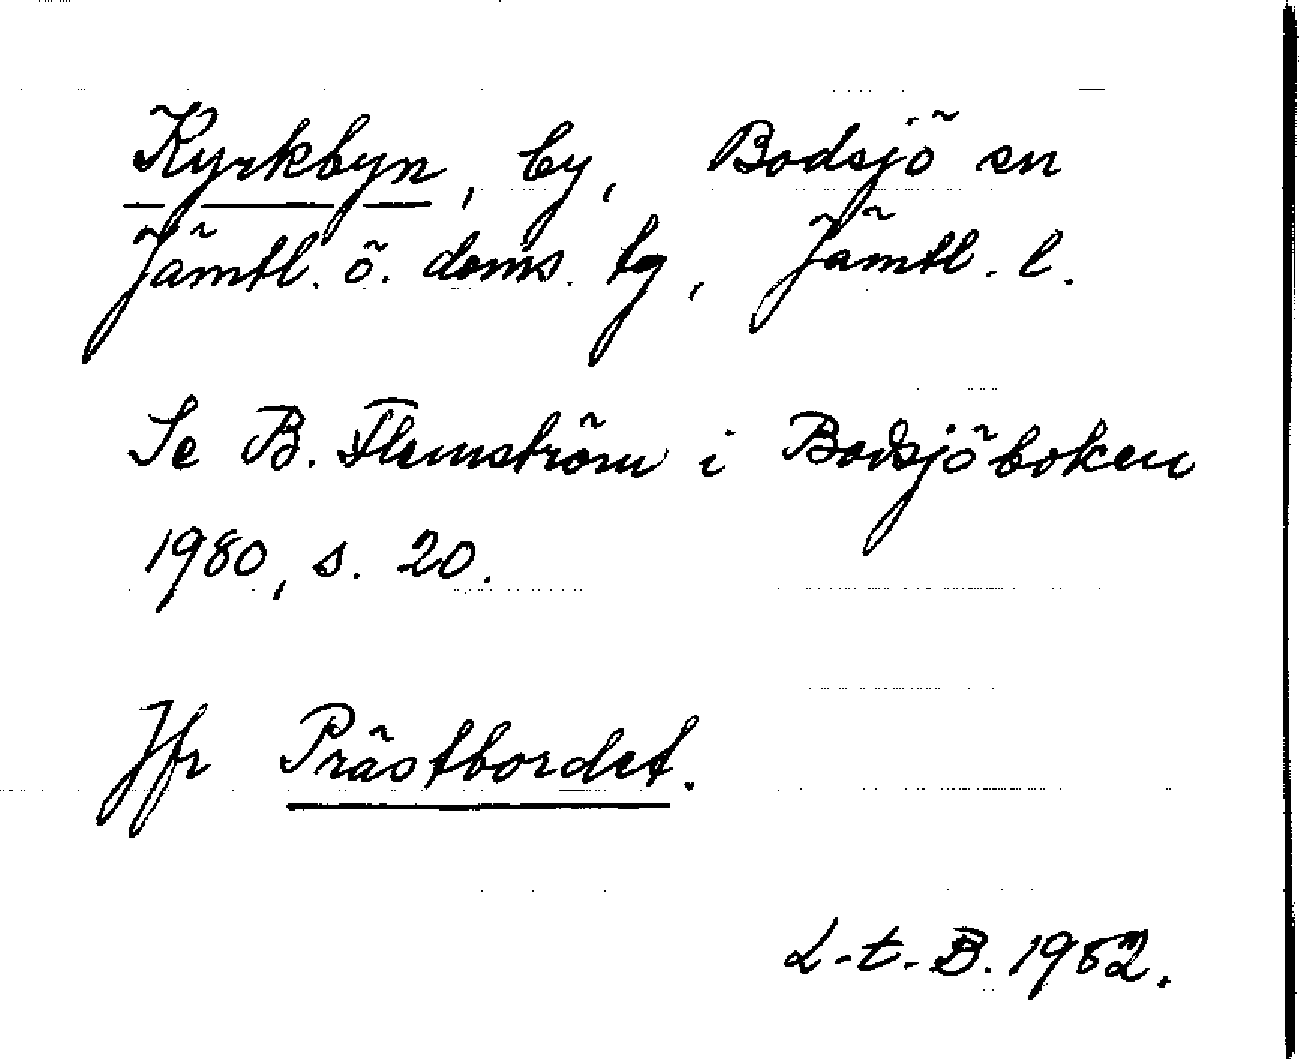 Kyrkbyn, by, Bodsjö sn
Jämtl. ö. doms. tg, Jämtl. l.
Se B. Flemström i Bodsjöboken
1980, s. 20.
Jfr Prästbordet.
L-t-B. 1982.